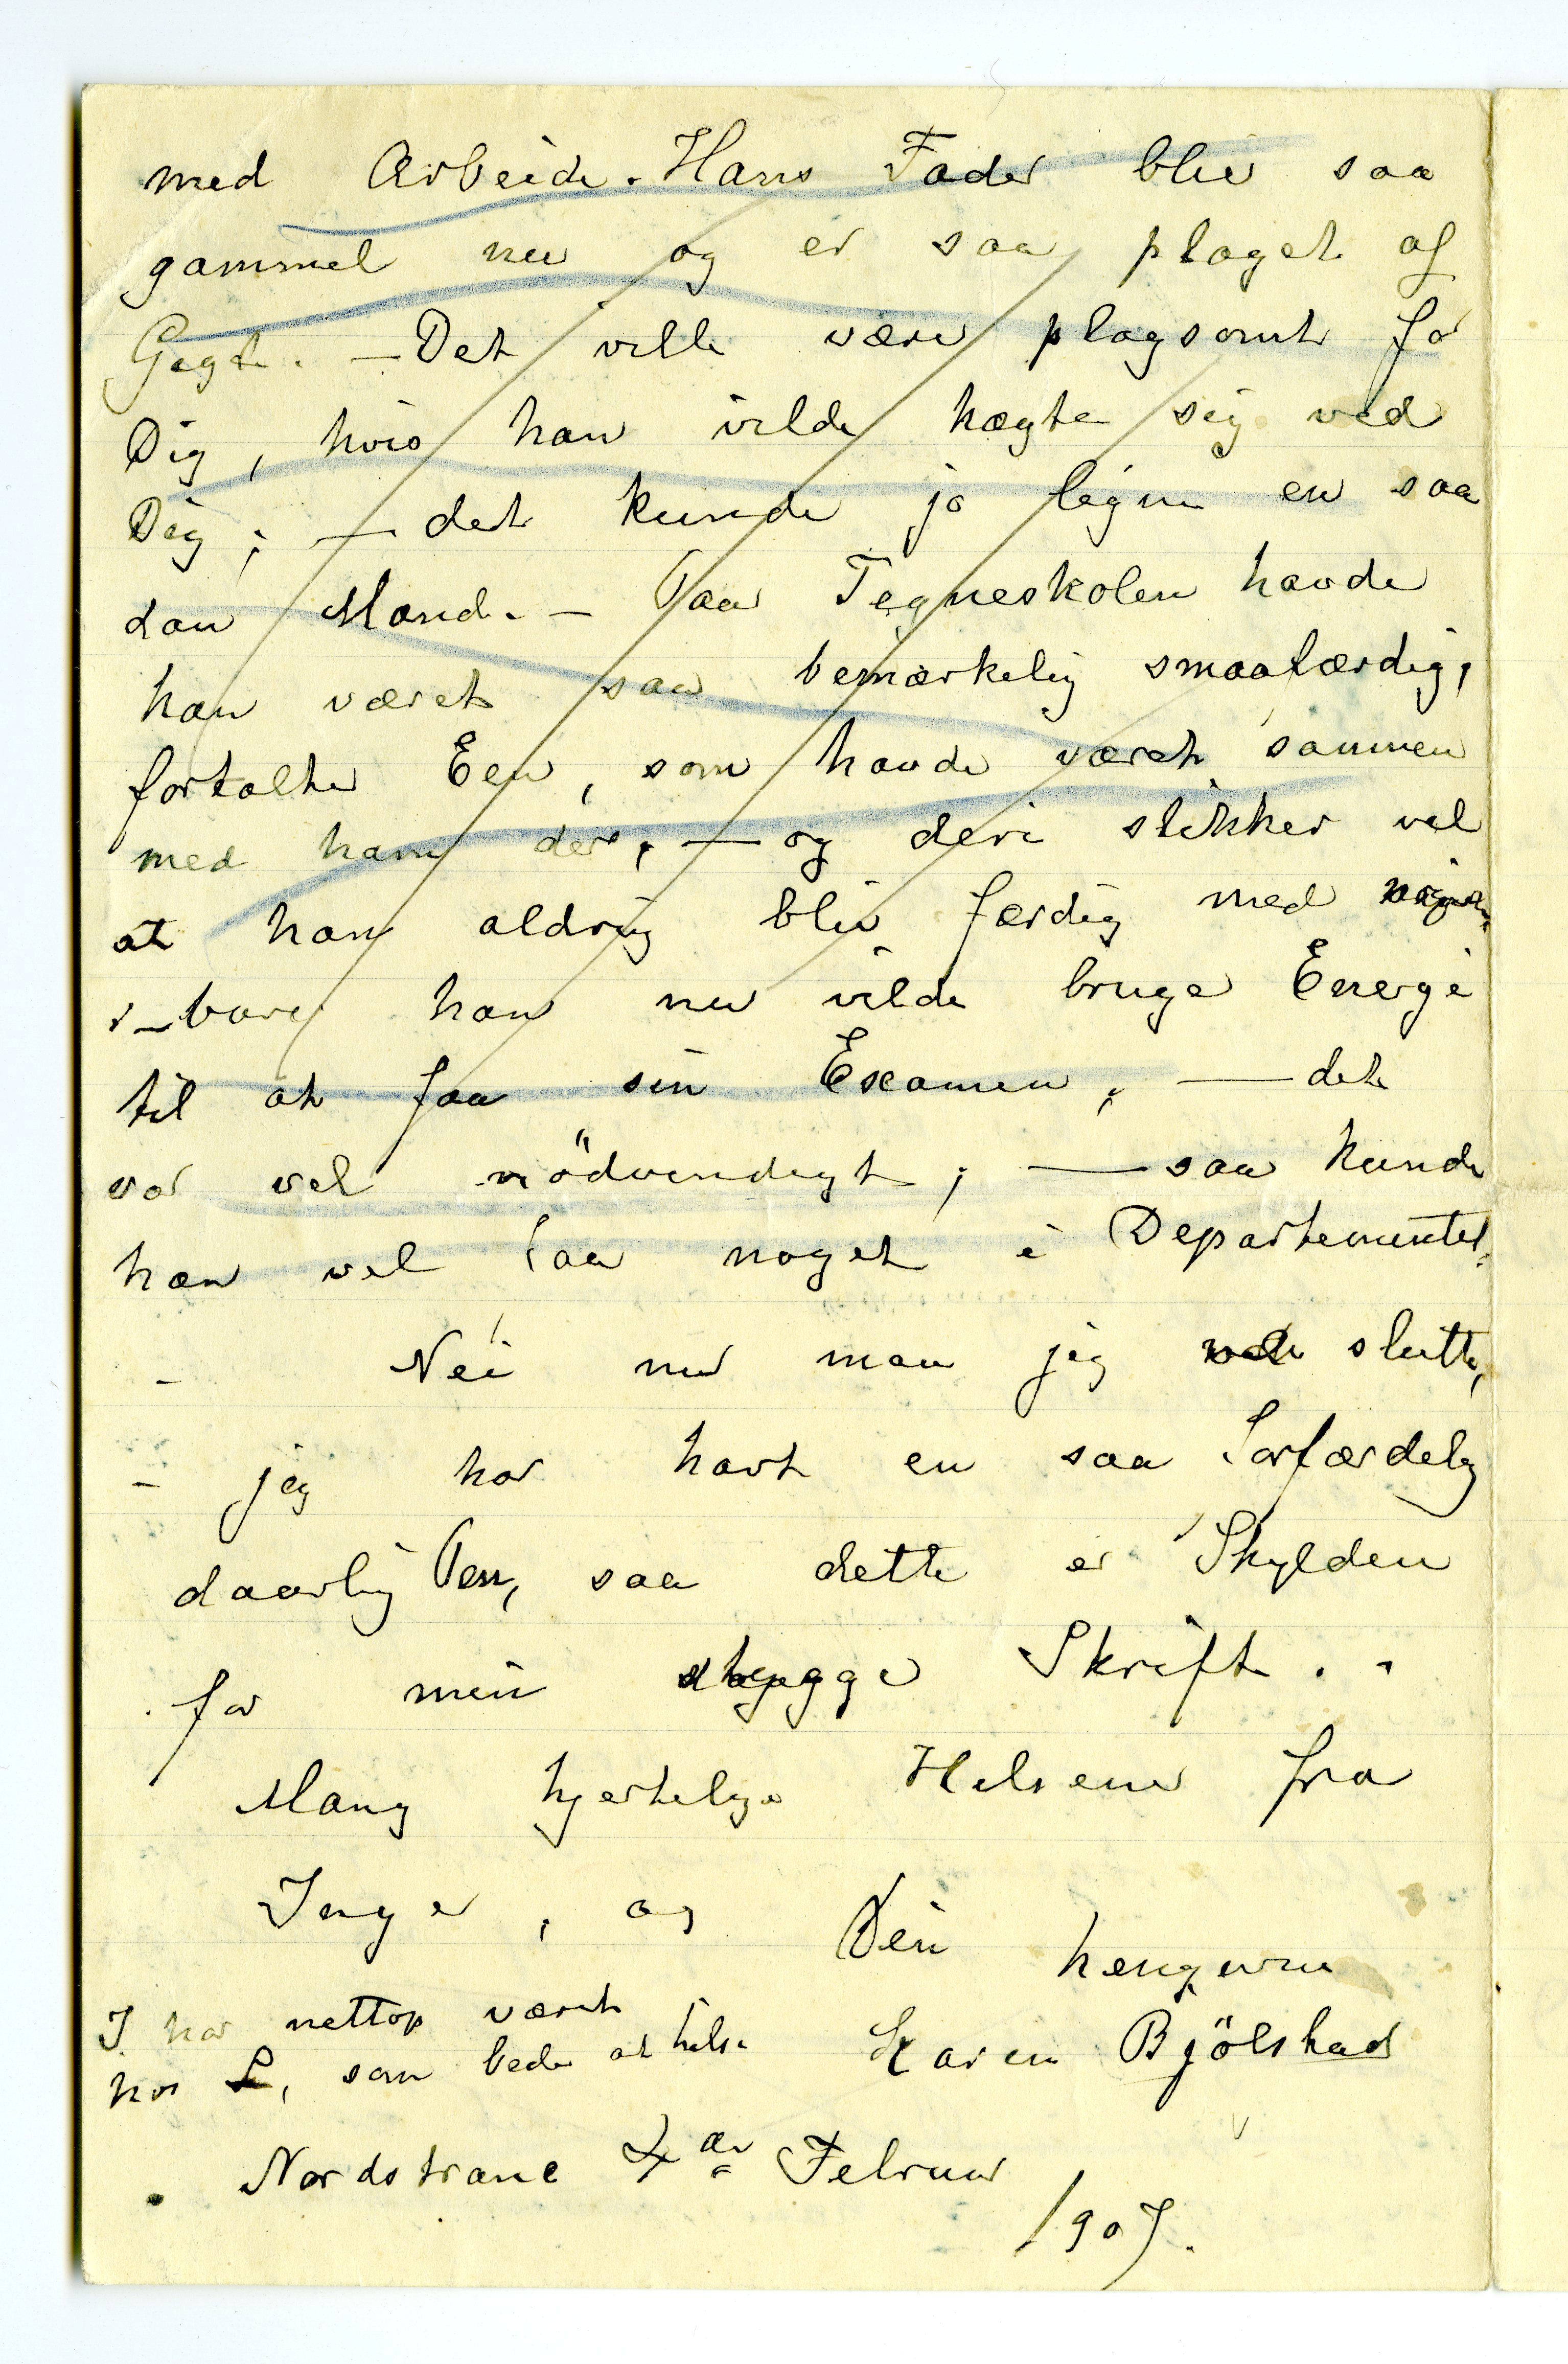 med Arbeide. Hans Fader bliv saa
gammel nu og er saa plaget af
Gigt. — Det ville være plagsomt for
Dig, hvis han vilde hægte sig ved
Dig; — det kunde ja ligne en saa
dan Mand. — Paa Tegneskolen havde
han været saa bemærkelig smaafærdig,
fortalte Een, som havde været sammen
med ham der, — og deri stikker vel
at han aldrig bliv færdig med
– bare han nu vilde bruge Energi
til at faa sin Examen, — det
var vel nödvendigt; — saa kunde
han vel faa noget i Departementet.
– Nei nu maa jeg slutte,
– jeg har havt en saa forfærdelig
daarlig Pen, saa dette er Skylden
for min stygge Skrift..
Mang hjertelige Helsener fra
Inger, og Din hengivne
I har nettop været
hos L, som beder at helse Karen Bjölstad
Nordstrand 4de Februar
1907.